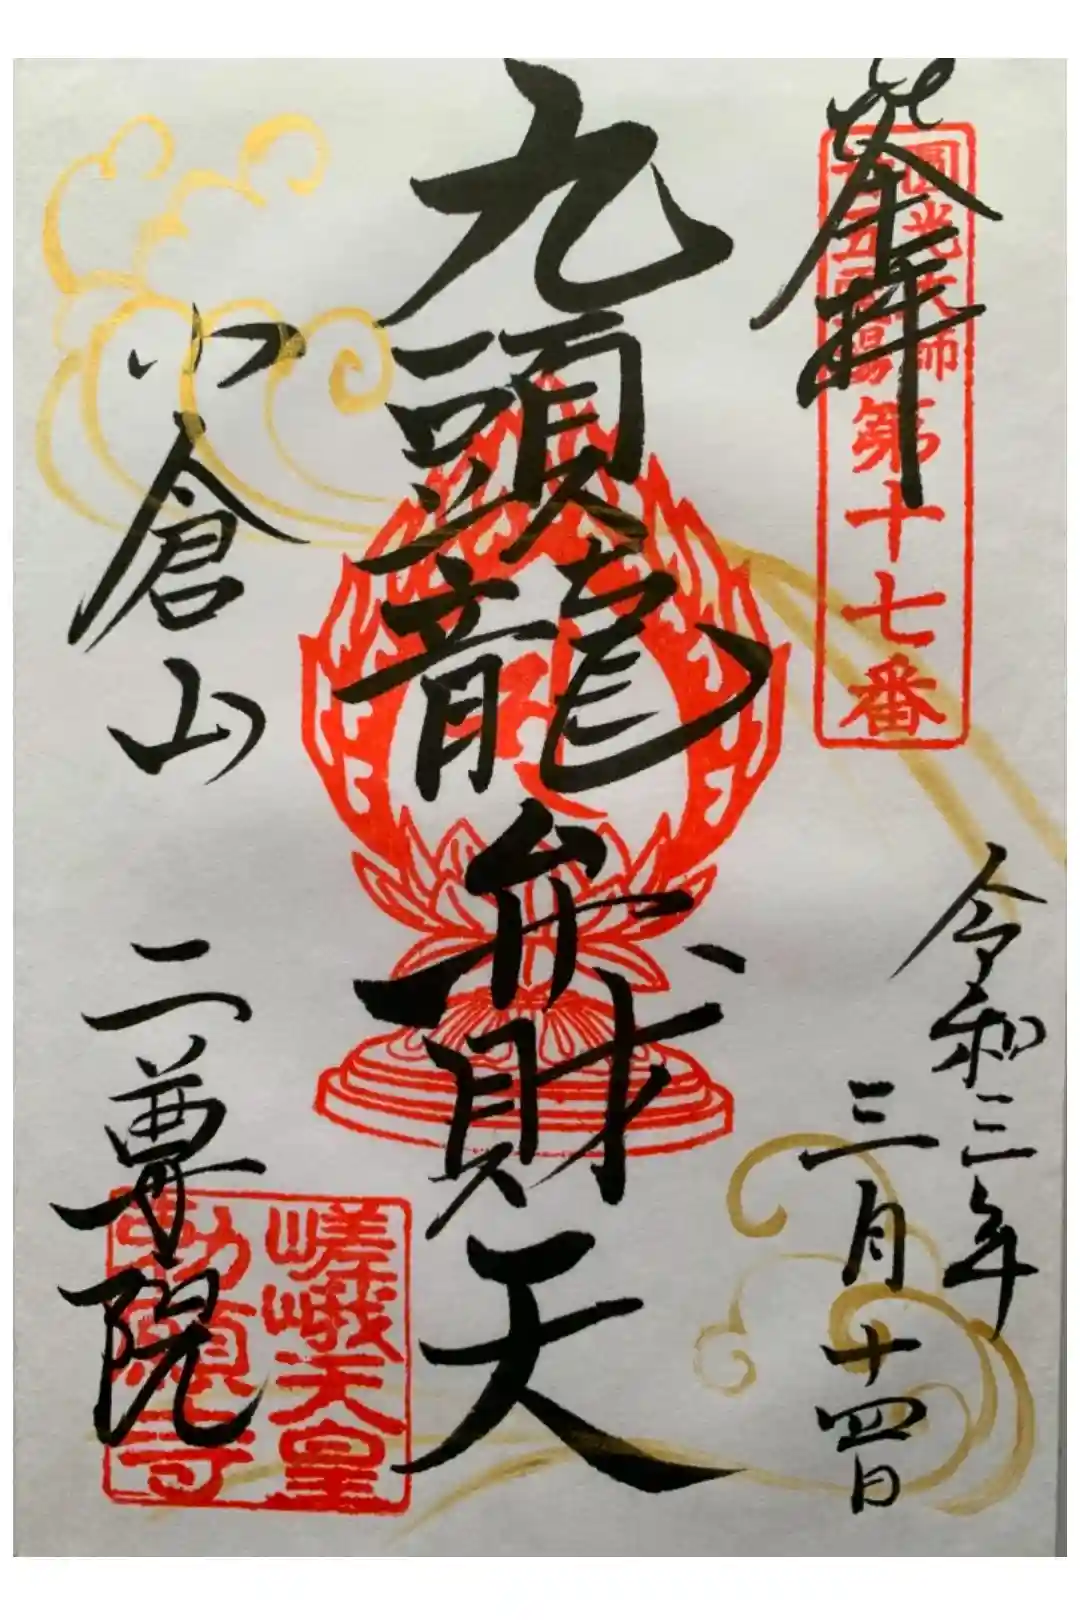 奉拝
圓光大師
廿五霊場第十七番
令和三年
三月十四日
九頭龍弁財天
小倉山
二尊院
嵯峨天皇
勅願寺